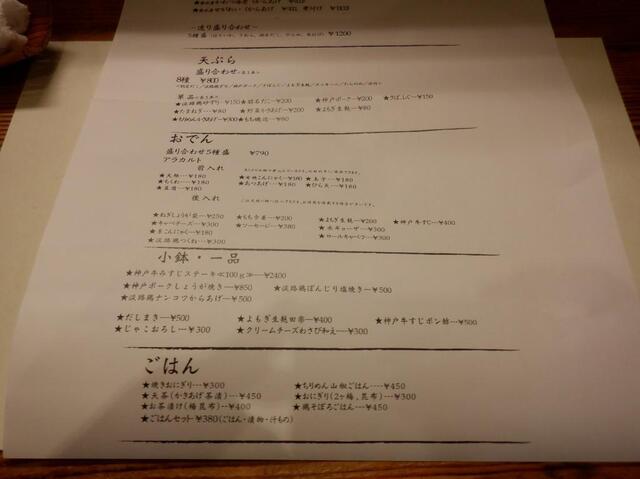 ~造り盛り合わせ~
¥1200
天ぷら
盛り合わせ
8種 ¥800
単品
★淡路鶏ササミ ¥150 ★明石だこ…¥200 ★神戸ポーク…¥200 ★さばふぐ…¥150
★たまねぎ…¥80 ★野菜かきあげ…¥200 ★よもぎ生麩…¥80
★ちりめんかきあげ…¥300 ★もち
おでん
盛り合わせ5種盛 ¥790
アラカルト
前入れ
★大根…¥180 ★こんにゃく…¥180 ★玉子…¥180
★ちくわ…¥180 ★あつあげ…¥180 ★ひら天…¥180
★豆腐…¥180
後入れ
★ねぎしょうが袋…¥250 ★もち巾着…¥200 ★よもぎ生麩…¥200 ★神戸牛すじ…¥400
★キャベチーズ…¥300 ★ソーセージ…¥380 ★水ギョーザ…¥300
★糸こんにゃく…¥180 ★ロールキャベツ…¥300
★淡路鶏つくね…¥300
小鉢・一品
★神戸牛みすじステーキ≪100g≫…¥2400
★神戸ポークしょうが焼き…¥850 ★淡路鶏ぼんじり塩焼き…¥500
★淡路鶏ナンコツからあげ…¥500
★だしまき…¥500 ★よもぎ生麩田楽…¥400 ★神戸牛すじポン酢…¥500
★じゃこおろし…¥300 ★クリームチーズわさび和え…¥300
ごはん
★焼きおにぎり…¥300 ★ちりめん山椒ごはん…¥450
★天茶(かきあげ茶漬)…¥450 ★おにぎり(2ヶ梅,昆布)…¥300
★お茶漬け(梅昆布)…¥400 ★鶏そぼろごはん…¥450
★ごはんセット¥380(ごはん・漬物・汁もの)